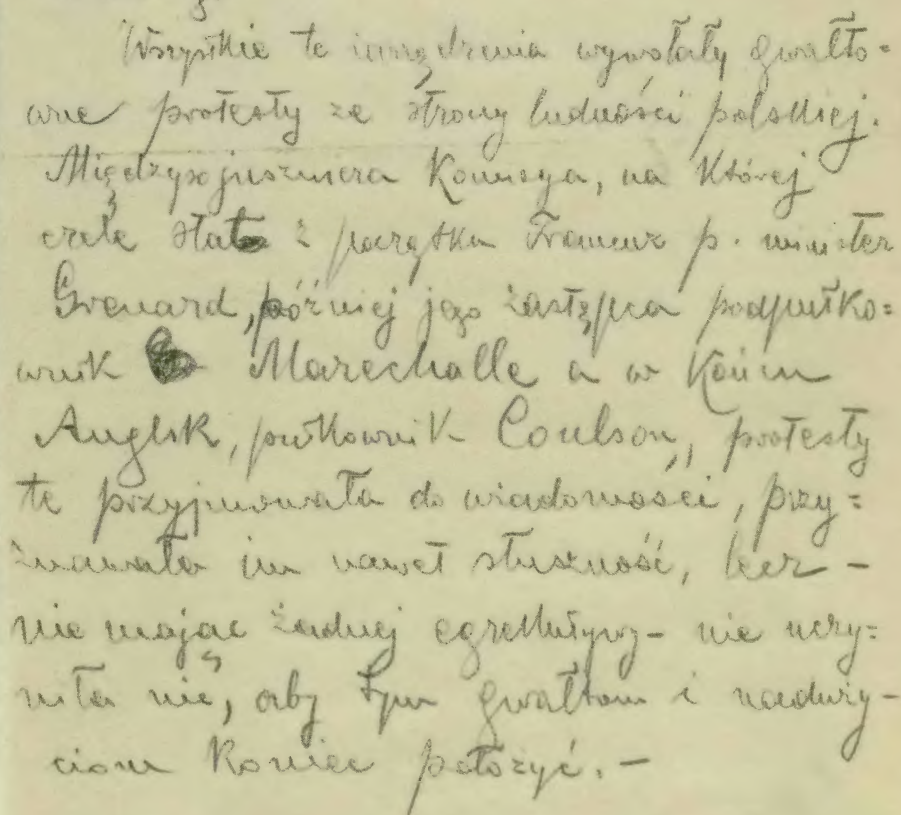 Wszystkie te zarządzenia wywołały gwałto=
wne protesty ze strony ludności polskiej.
Międzysojusznicza Komisya, na której
czele stała z początku Francuz p. minister
Grenard, później jego zastępca podpułko=
wnik Marechalle a w końcu
Anglik, pułkownik Coulson, protesty
te przyjmowała do wiadomości, przy=
znawała im nawet słuszność, lecz -
nie mając żadnej egzekutywy - nie uczy=
niła nic, aby tym gwałtom i naduży-
ciom koniec położyć. -